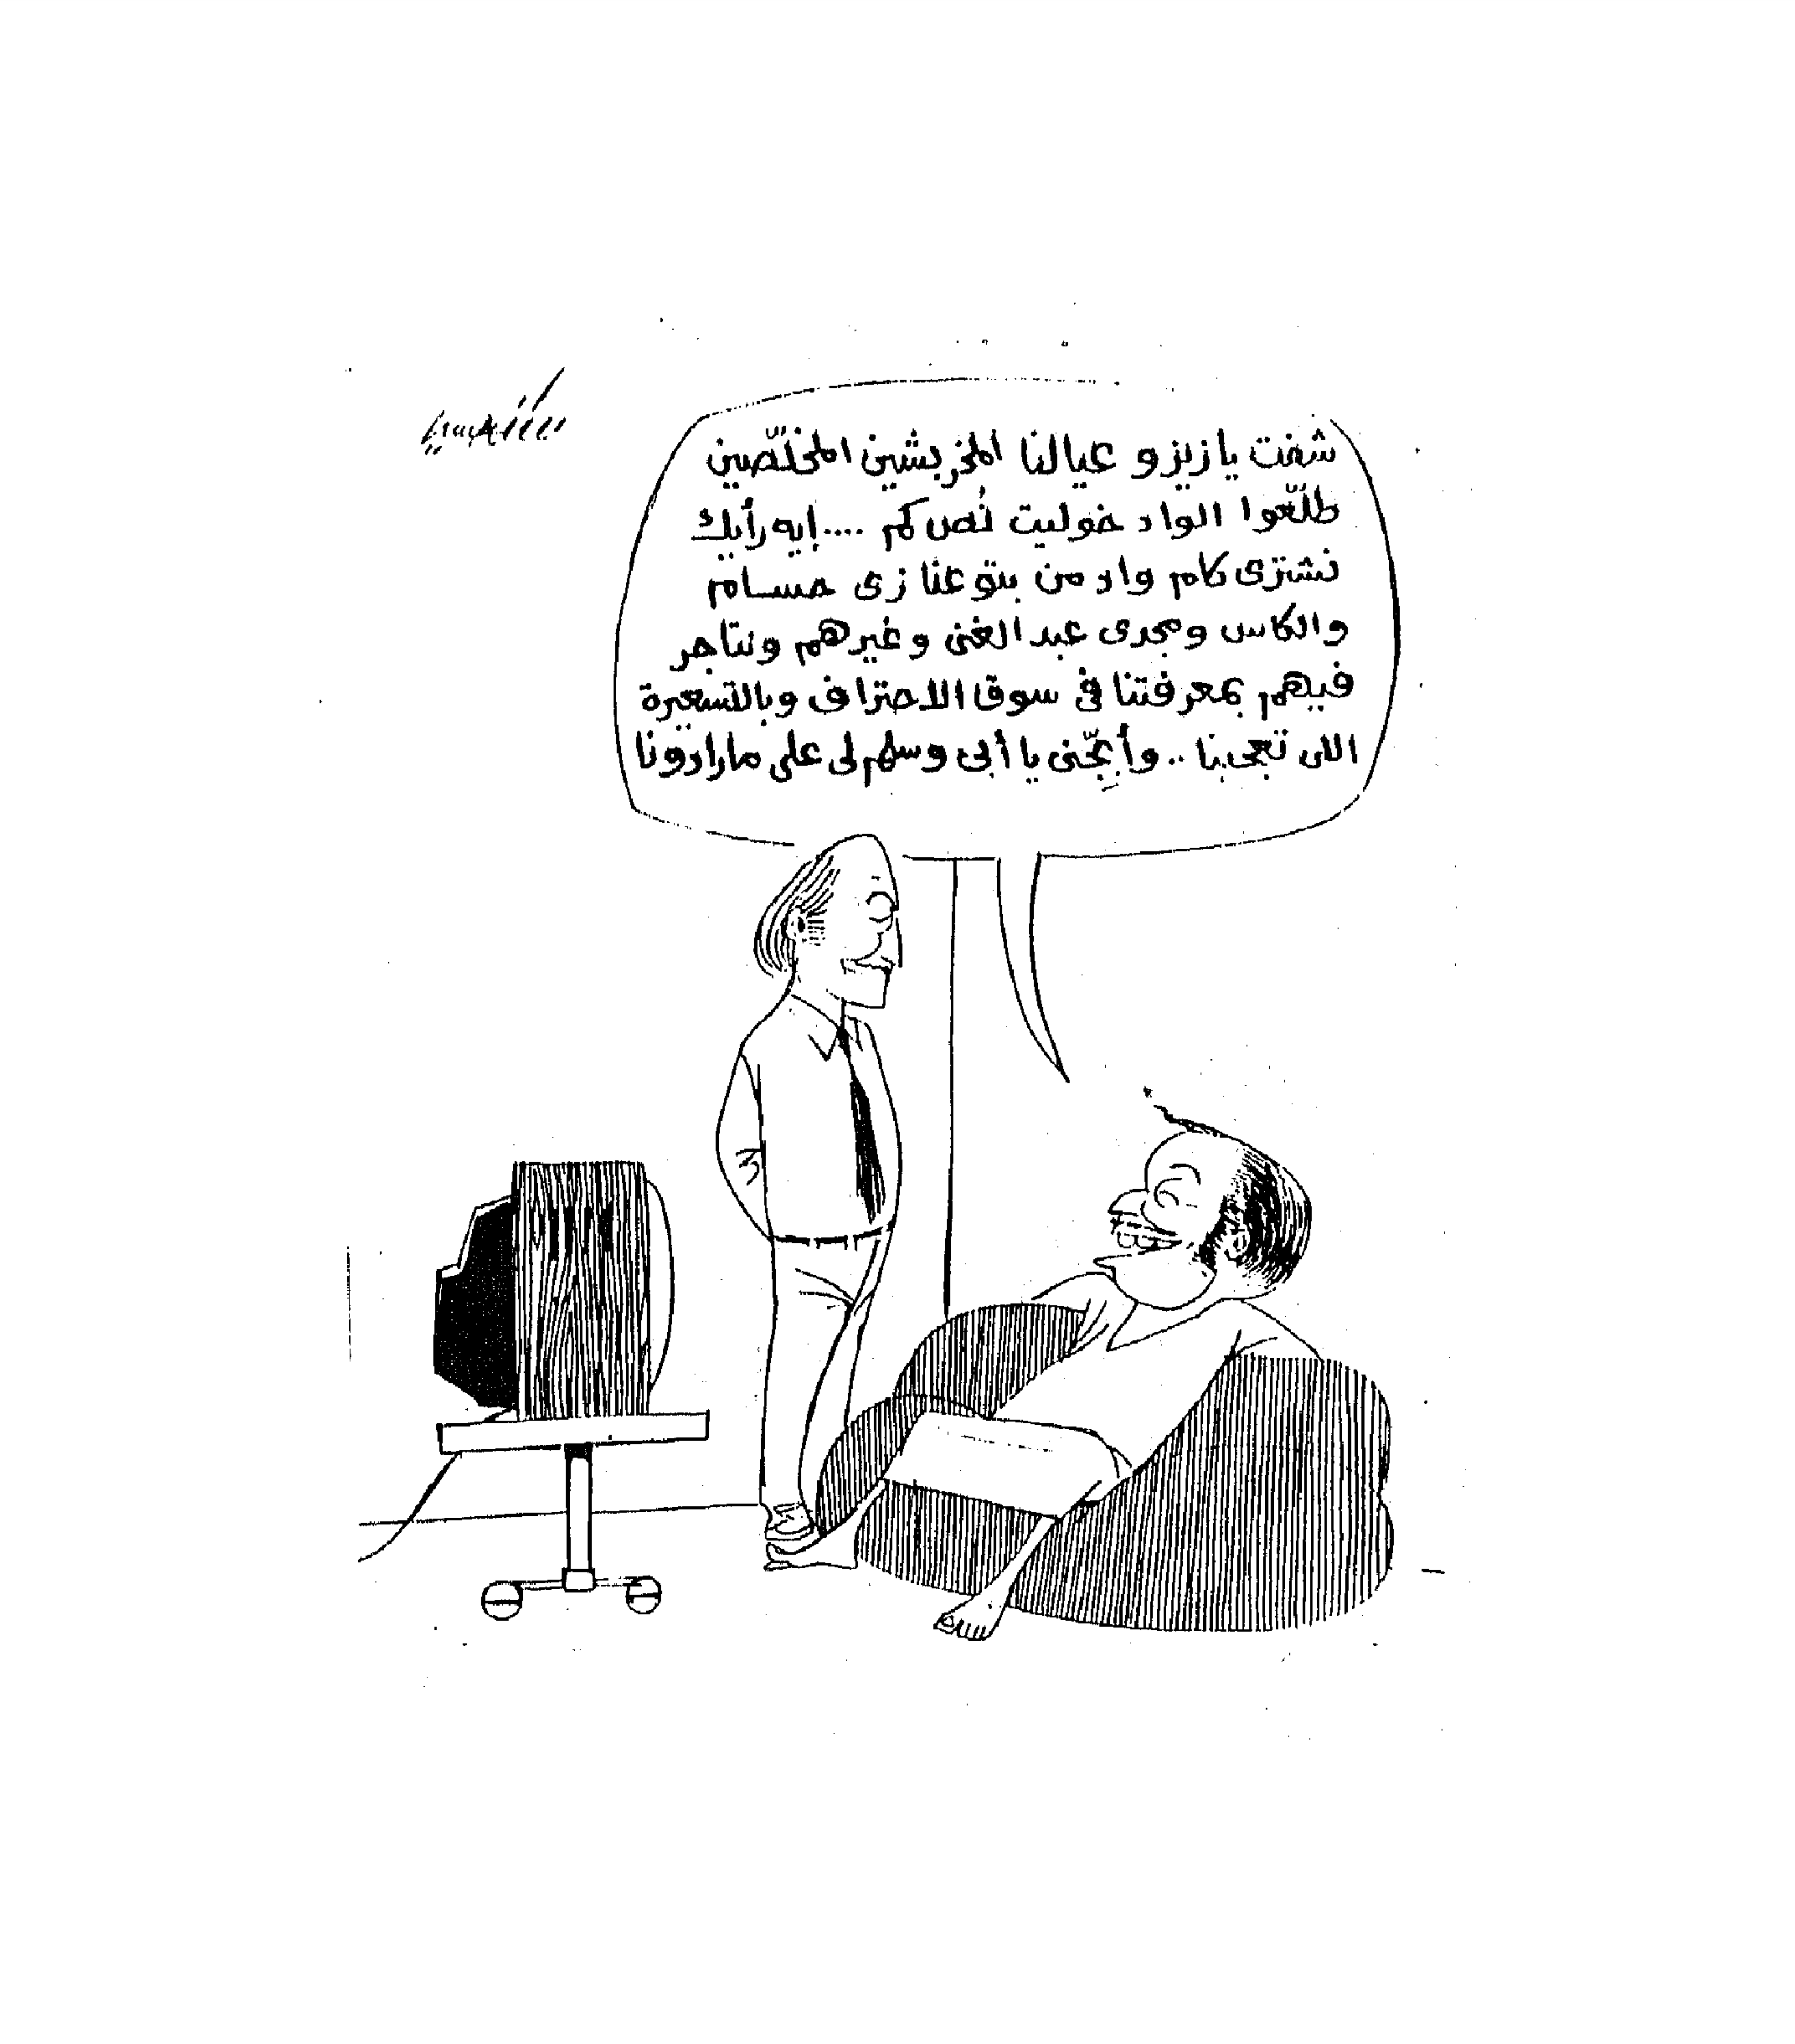 شفت يا زيزو عيالنا المخربشين المخلّصين
طلّعوا الواد خوليت نُص كم ....إيه رأيك
نشترى كام واد من بتوعنا زى حسام
والكاس ومجدى عبد الغنى وغيرهم ونتاجر
فيهم بمعرفتنا فى سوق الاحتراف وبالتسعيرة
اللى تعجبنا .. وأبجّنى يا أبى وسلم لى على مارادونا